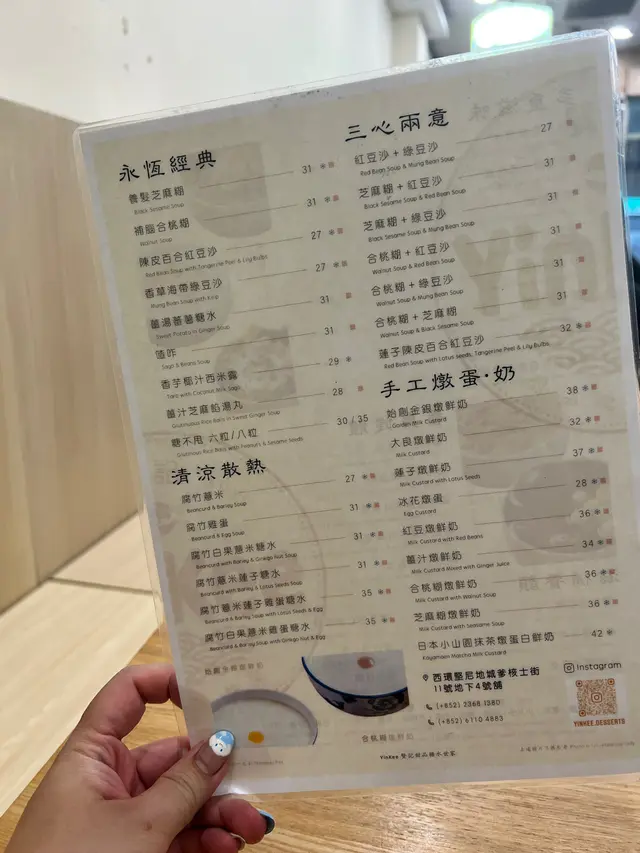 永恆經典
養髮芝麻糊 31
Black Sesame Soup
補腦合桃糊 31
Walnut Soup
陳皮百合紅豆沙 27
Red Bean Soup with Tangerine Peel & Lily Bulbs
香草海帶綠豆沙 27
Mung Bean Soup with Kelp
薑湯蕃薯糖水 31
Sweet Potato in Ginger Soup
喳咋 31
Sago & Beans Soup
香芋椰汁西米露 29
Taro with Coconut Milk Sago
薑汁芝麻餡湯丸 28
Glutinous Rice Balls in Sweet Ginger Soup
糖不甩 六粒/八粒 30 / 35
Glutinous Rice Balls with Peanuts & Sesame Seeds
清涼散熱
腐竹薏米 27
Beancurd & Barley Soup
腐竹雞蛋 31
Beancurd & Egg Soup
腐竹白果薏米糖水 31
Beancurd with Barley & Ginkgo Nut Soup
腐竹薏米蓮子糖水 31
Beancurd with Barley & Lotus Seeds Soup
腐竹薏米蓮子雞蛋糖水 35
Beancurd & Barley Soup with Lotus Seeds & Egg
腐竹白果薏米雞蛋糖水 35
Beancurd & Barley Soup with Ginkgo Nut & Egg
三心兩意
紅豆沙 + 綠豆沙 27
Red Bean Soup & Mung Bean Soup
芝麻糊 + 紅豆沙 31
Black Sesame Soup & Red Bean Soup
芝麻糊 + 綠豆沙 31
Black Sesame Soup & Mung Bean Soup
合桃糊 + 紅豆沙 31
Walnut Soup & Red Bean Soup
合桃糊 + 綠豆沙 31
Walnut Soup & Mung Bean Soup
合桃糊 + 芝麻糊 31
Walnut Soup & Black Sesame Soup
蓮子陳皮百合紅豆沙 32
Red Bean Soup with Lotus Seeds, Tangerine Peel & Lily Bulbs
手工燉蛋·奶
始創金銀燉鮮奶 38
Golden Milk Custard
大良燉鮮奶 32
Milk Custard
蓮子燉鮮奶 37
Milk Custard with Lotus Seeds
冰花燉蛋 28
Egg Custard
紅豆燉鮮奶 36
Milk Custard with Red Beans
薑汁燉鮮奶 34
Milk Custard Mixed with Ginger Juice
合桃糊燉鮮奶 36
Milk Custard with Walnut Soup
芝麻糊燉鮮奶 36
Milk Custard with Sesame Soup
日本小山園抹茶燉蛋白鮮奶 42
Koyamaen Matcha Milk Custard
西環堅尼地城爹核士街
11號地下4號舖
(+852) 2368 1380
(+852) 6110 4883
Instagram
YINKEE.DESSERTS
合桃糊燉鮮奶
YinKee 賢記甜品糖水世家